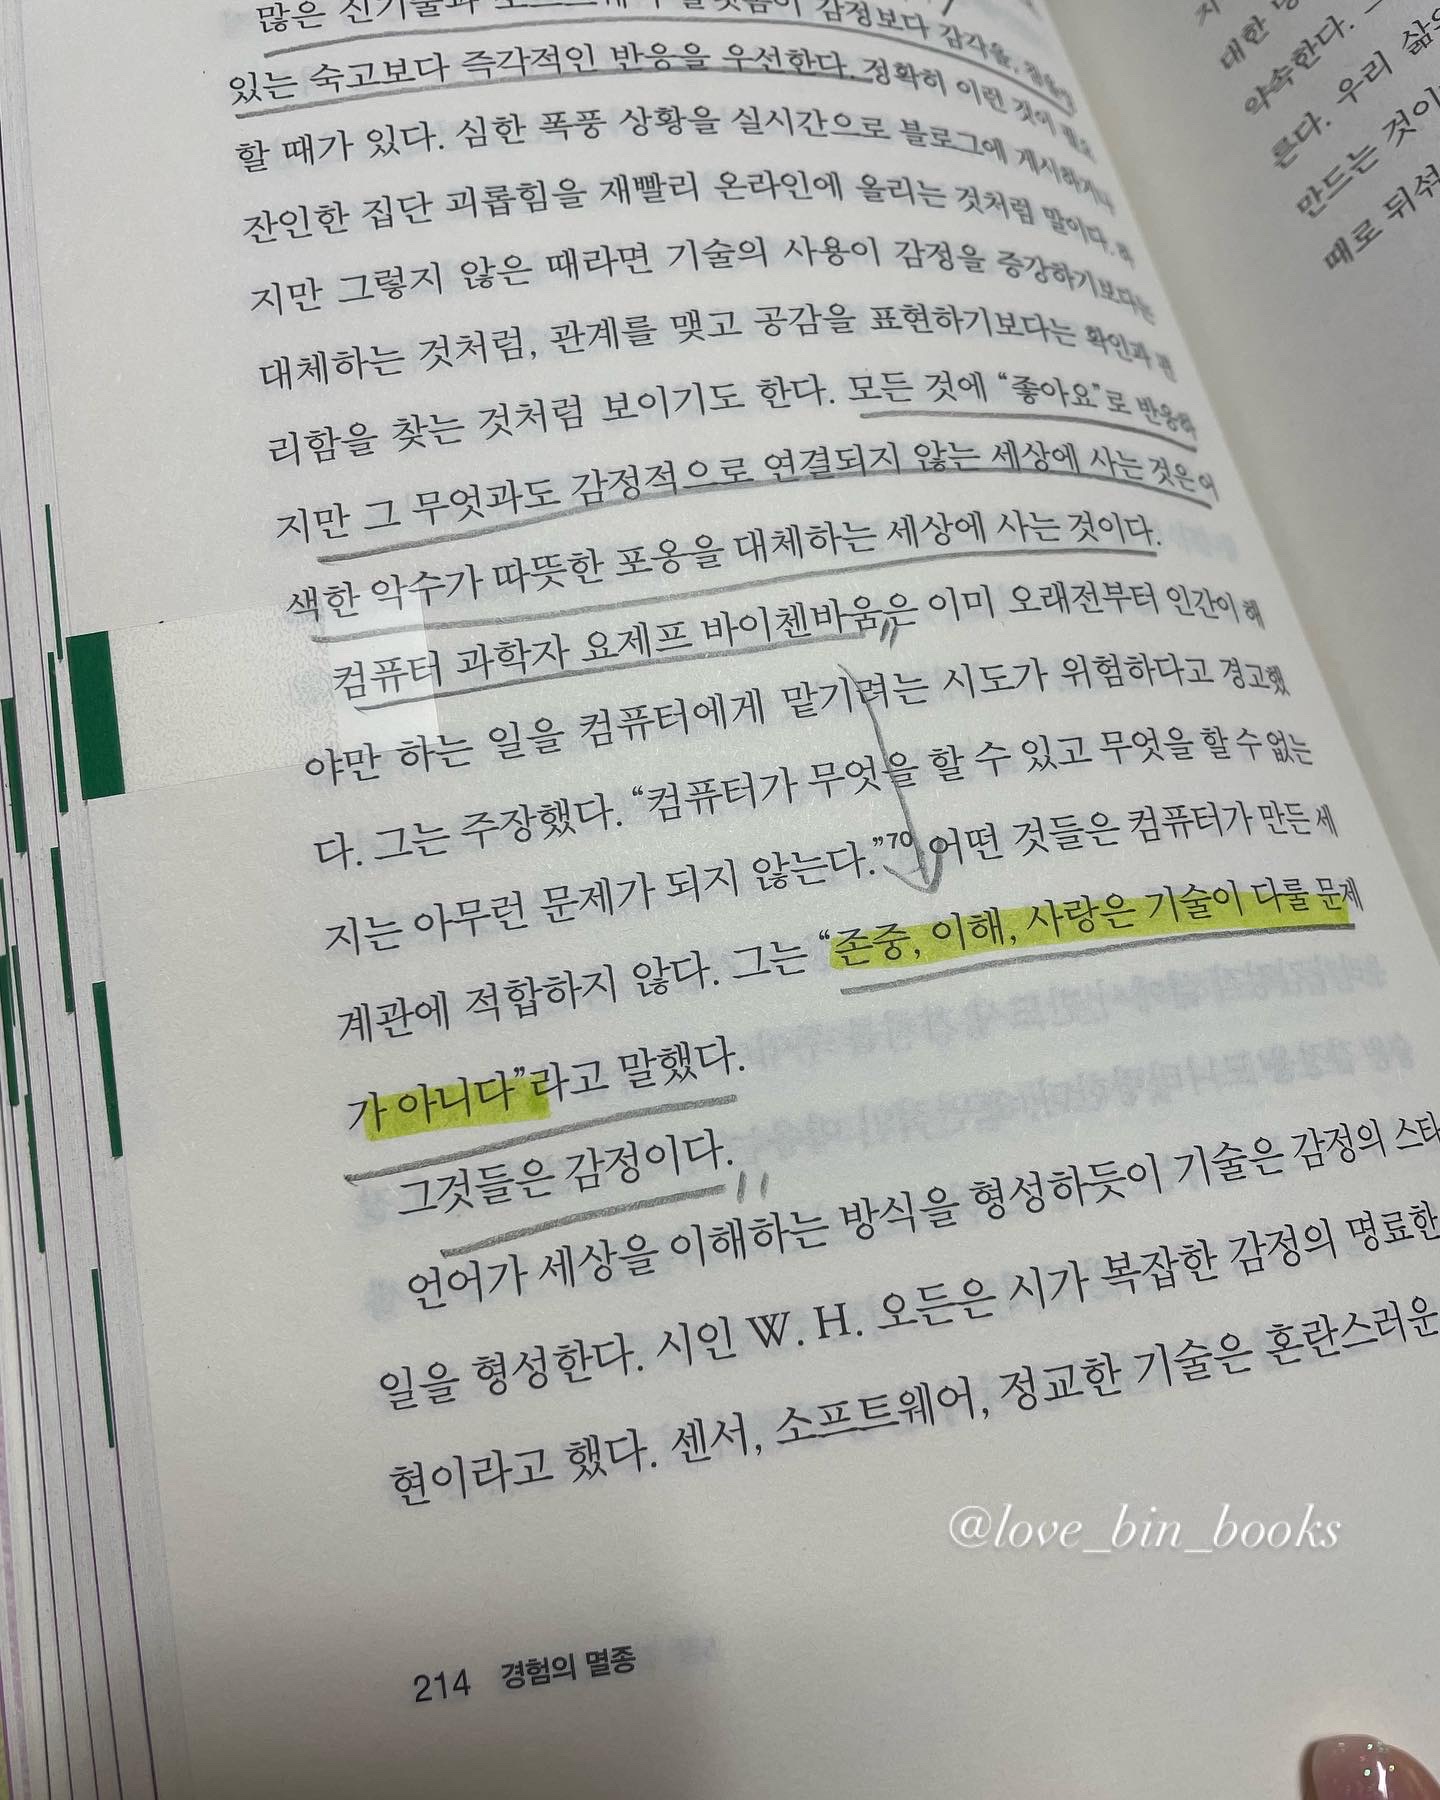 많은 신기술과 소프트웨어 플랫폼이 감정보다 감각을,
있는 숙고보다 즉각적인 반응을 우선한다. 정확히 이런 것이 필요
할 때가 있다. 심한 폭풍 상황을 실시간으로 블로그에 게시하거나
잔인한 집단 괴롭힘을 재빨리 온라인에 올리는 것처럼 말이다. 하
지만 그렇지 않은 때라면 기술의 사용이 감정을 증강하기보다는
대체하는 것처럼, 관계를 맺고 공감을 표현하기보다는 확인과 편
리함을 찾는 것처럼 보이기도 한다. 모든 것에 “좋아요”로 반응하
지만 그 무엇과도 감정적으로 연결되지 않는 세상에 사는 것은 어
색한 악수가 따뜻한 포옹을 대체하는 세상에 사는 것이다.
컴퓨터 과학자 요제프 바이첸바움은 이미 오래전부터 인간이 해
야만 하는 일을 컴퓨터에게 맡기려는 시도가 위험하다고 경고했
다. 그는 주장했다. “컴퓨터가 무엇을 할 수 있고 무엇을 할 수 없는
지는 아무런 문제가 되지 않는다.”70 어떤 것들은 컴퓨터가 만든 세
계관에 적합하지 않다. 그는 “존중, 이해, 사랑은 기술이 다룰 문제
가 아니다”라고 말했다.
그것들은 감정이다.
언어가 세상을 이해하는 방식을 형성하듯이 기술은 감정의 스타
일을 형성한다. 시인 W. H. 오든은 시가 복잡한 감정의 명료한
현이라고 했다. 센서, 소프트웨어, 정교한 기술은 혼란스러운
@love_bin_books
214 경험의 멸종
지
대한
약속한다.
른다. 우리 삶의
만드는 것이
때로 뒤섞